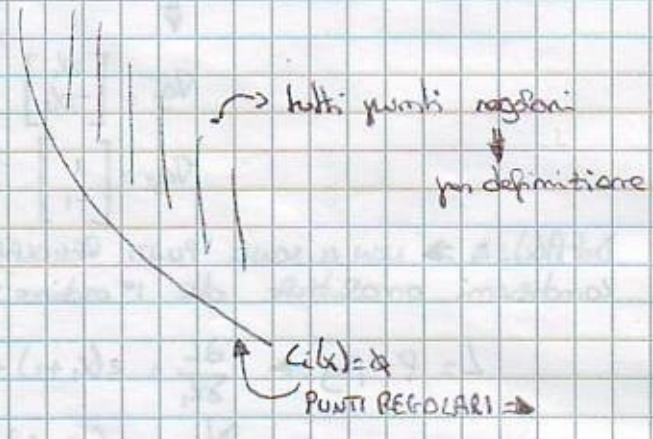 tutti punti regolari
per definizione
Ci(x)=0
PUNTI REGOLARI ⇒